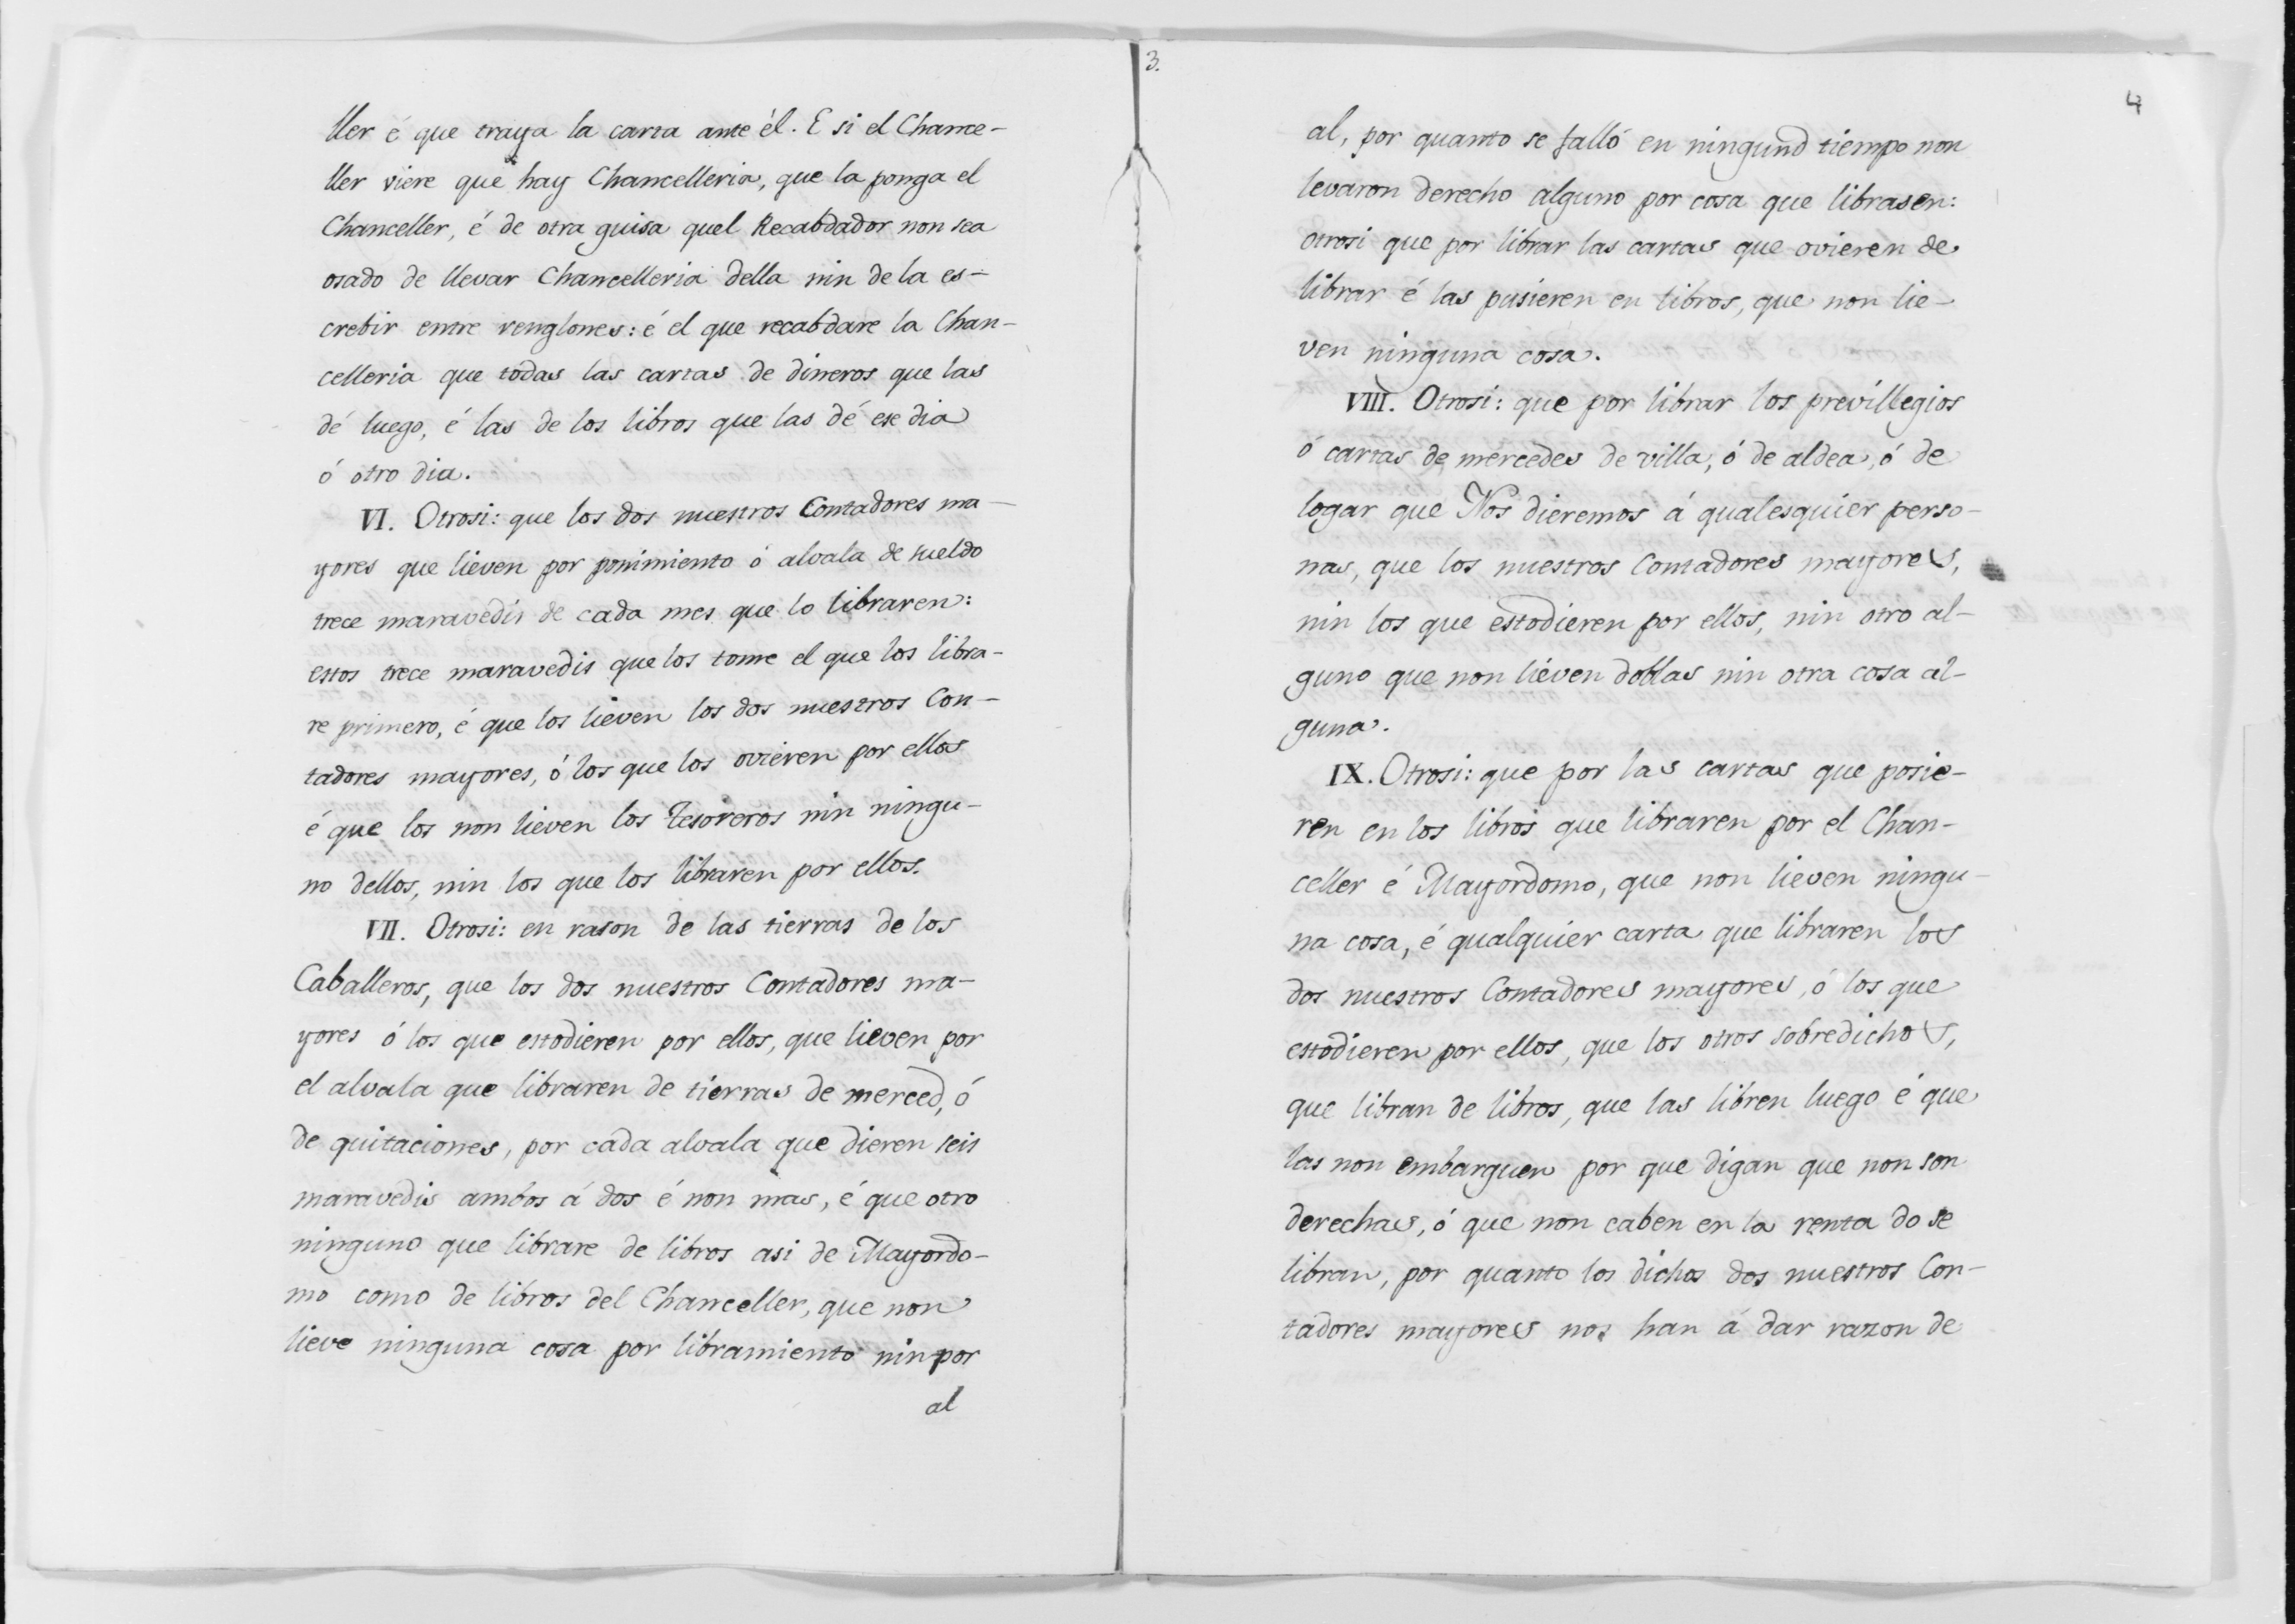 3.
ller é que traya la carta ante él. E si el Chance-
ller viere que hay Chancelleria, que la ponga el
Chanceller, é de otra guisa quel Recabdador non sea
osado de llevar Chancelleria della nin de la es-
crebir entre renglones: é el que recabdare la Chan-
celleria que todas las cartas de dineros que las
dé luego, é las de los libros que las dé ese dia
ó otro dia.
VI. Otrosi: que los dos nuestros Contadores ma-
yores que lieven por ponimiento ó alvala de sueldo
trece maravedis de cada mes que lo libraren:
estos trece maravedis que los tome el que los libra-
re primero, é que los lieven los dos nuestros Con-
tadores mayores, ó los que los ovieren por ellos
é que los non lieven los Tesoreros nin ningu-
no dellos, nin los que los libraren por ellos.
VII. Otrosi: en rason de las tierras de los
Caballeros, que los dos nuestros Contadores ma-
yores ó los que estodieren por ellos, que lieven por
el alvala que libraren de tierras de merced, ó
de quitaciones, por cada alvala que dieren seis
maravedis ambos á dos é non mas, é que otro
ninguno que librare de libros asi de Mayordo-
mo como de libros del Chanceller, que non
lieve ninguna cosa por libramiento nin por
al
4
al, por quanto se falló en ningund tiempo non
levaron derecho alguno por cosa que librasen:
otrosi que por librar las cartas que ovieren de
librar é las pusieren en libros, que non lie-
ven ninguna cosa.
VIII. Otrosi: que por librar los previllegios
ó cartas de mercedes de villa, ó de aldea, ó de
logar que Nos dieremos á qualesquier perso-
nas, que los nuestros Contadores mayores,
nin los que estodieren por ellos, nin otro al-
guno que non lieven doblas nin otra cosa al-
guna.
IX. Otrosi: que por las cartas que posie-
ren en los libros que libraren por el Chan-
celler é Mayordomo, que non lieven ningu-
na cosa, é qualquier carta que libraren los
dos nuestros Contadores mayores, ó los que
estodieren por ellos, que los otros sobredichos,
que libran de libros, que las libren luego é que
las non embarguen por que digan que non son
derechas, ó que non caben en la renta do se
libran, por quanto los dichos dos nuestros Con-
tadores mayores nos han á dar razon de